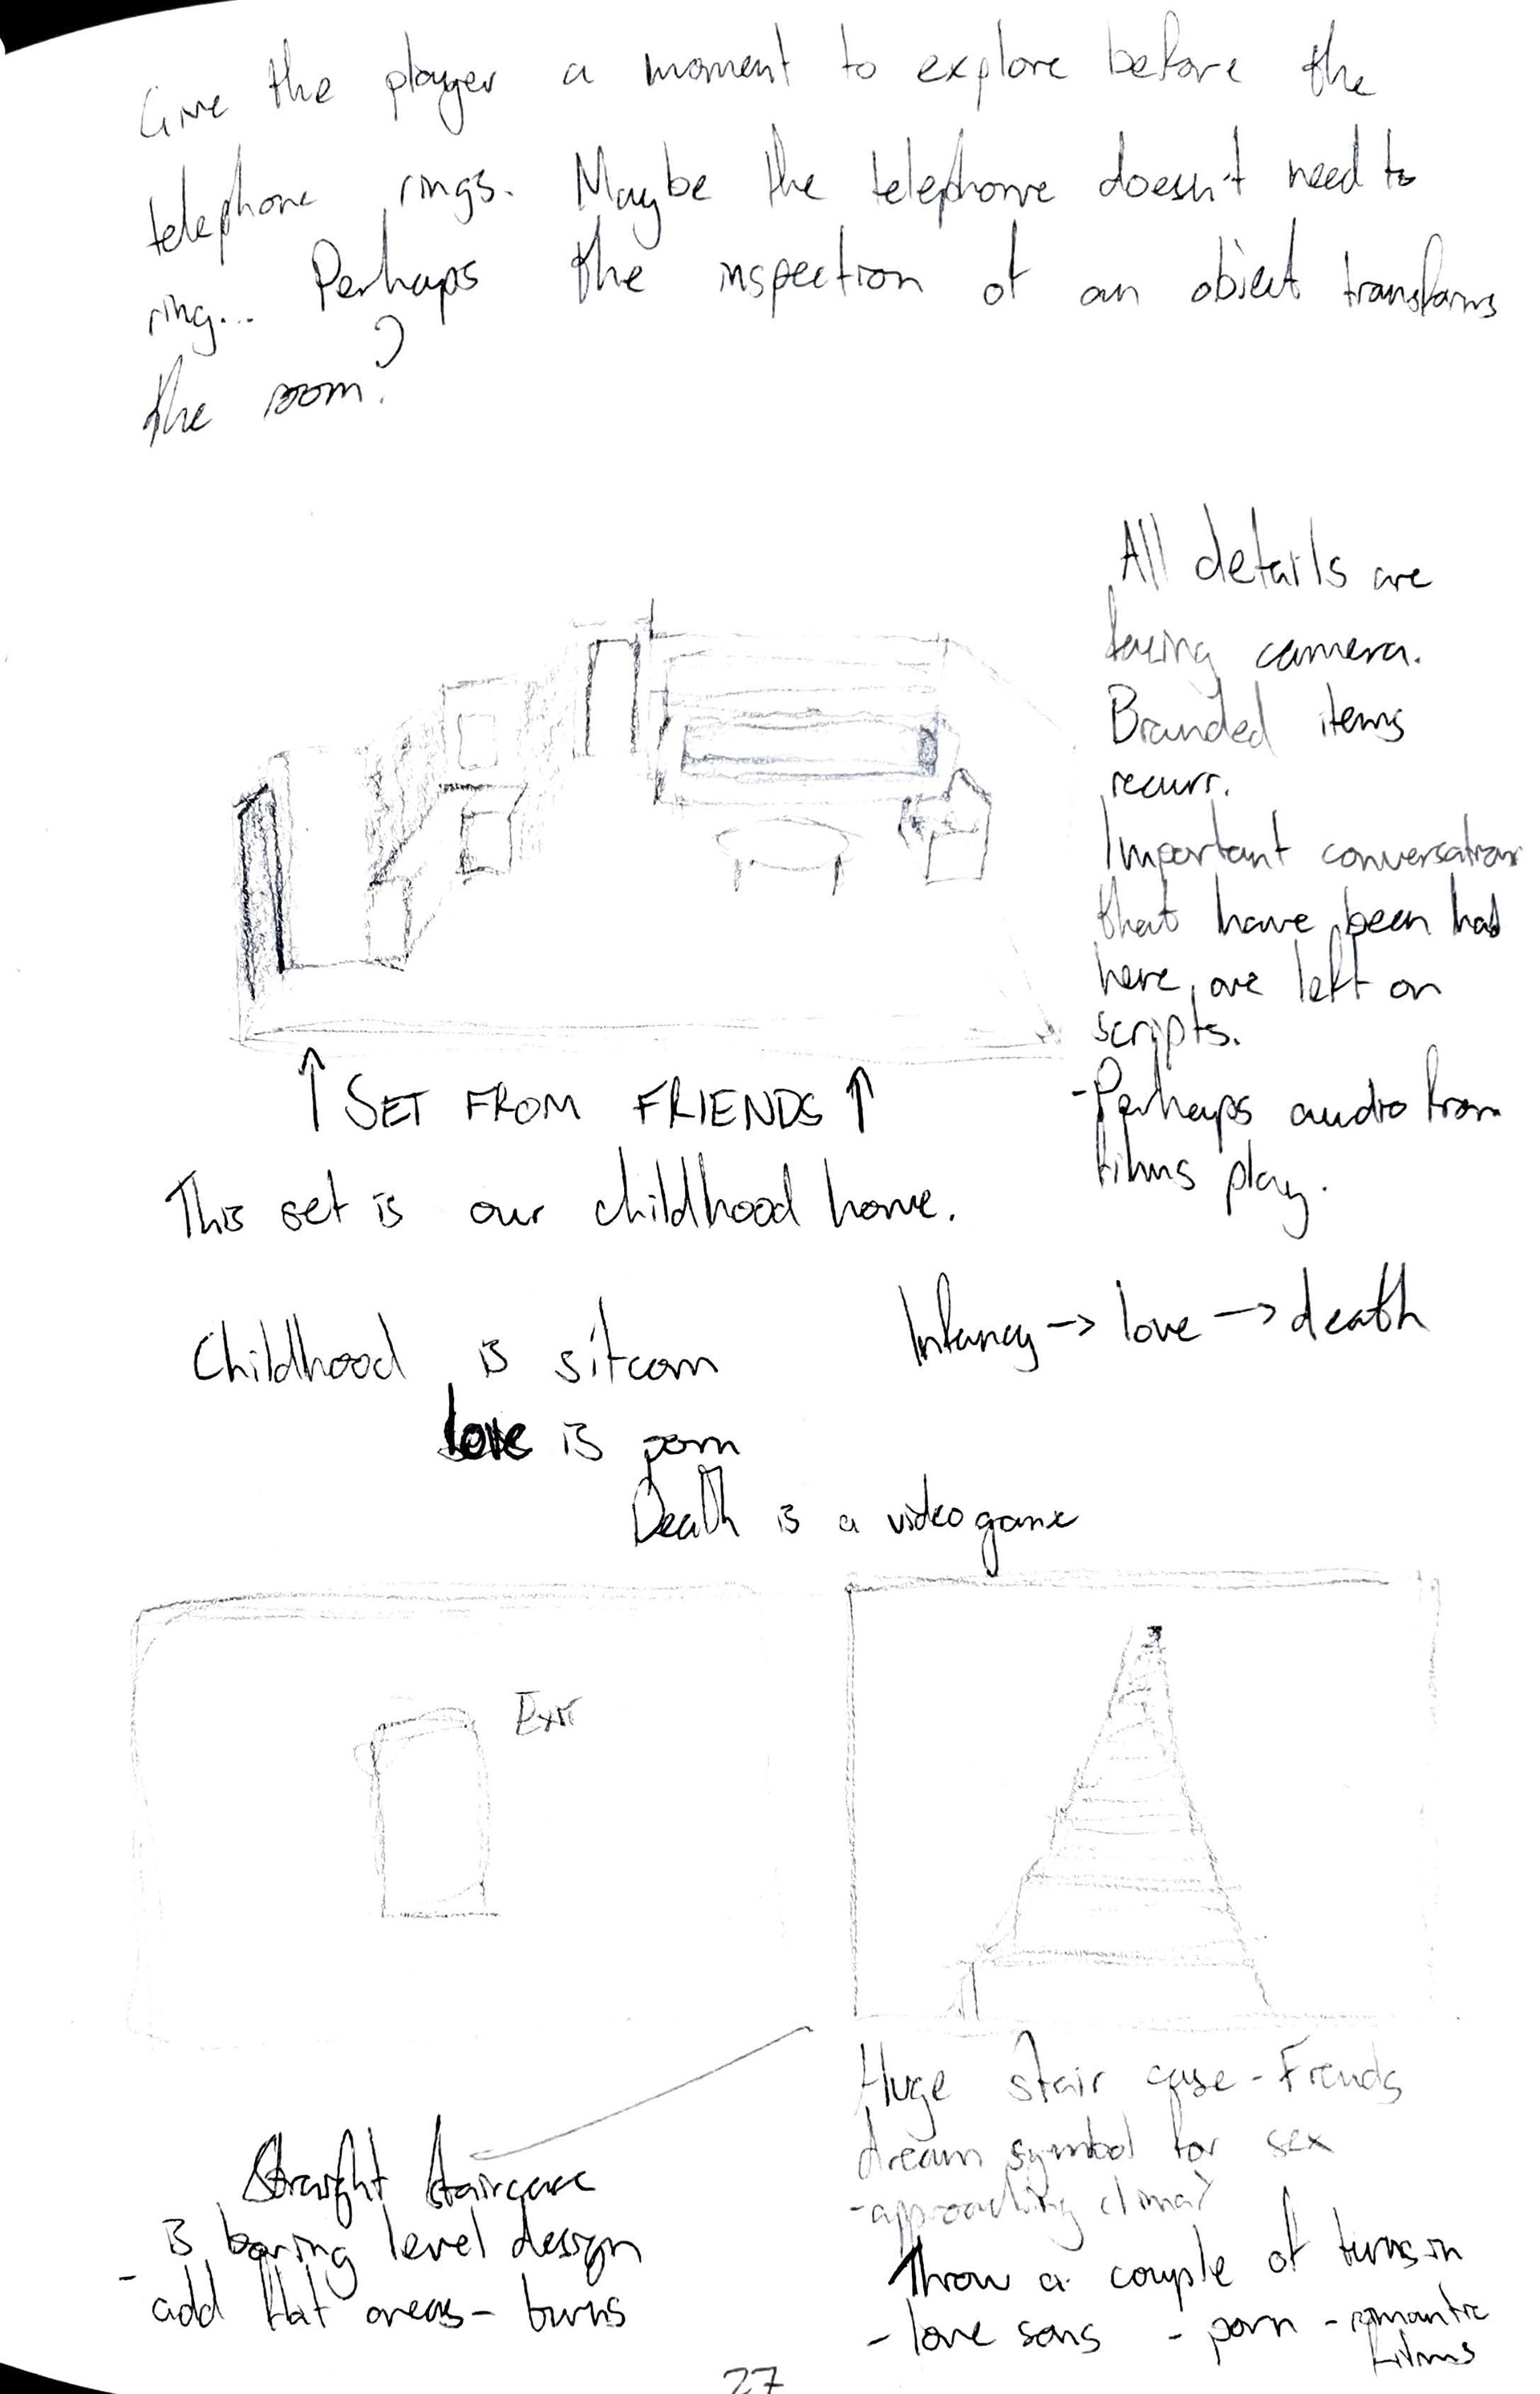 Give the player a moment to explore before the
telephone rings. Maybe the telephone doesn't need to
ring... Perhaps the inspection of an object transforms
the room?
All details are
facing camera.
Branded items
recurr.
Important conversations
that have been had
here, are left on
scripts.
- Perhaps audio from
films play.
↑ SET FROM FRIENDS ↑
This set is our childhood home.
Infancy -> love -> death
Childhood is sitcom
love is porn
Death is a videogame
Exit
Huge stair case - Freuds
dream symbol for sex
- approaching climax
Throw a couple of turns in
- love songs - porn - romantic
films
Straight staircase
is boring level design
- add flat areas - turns
27